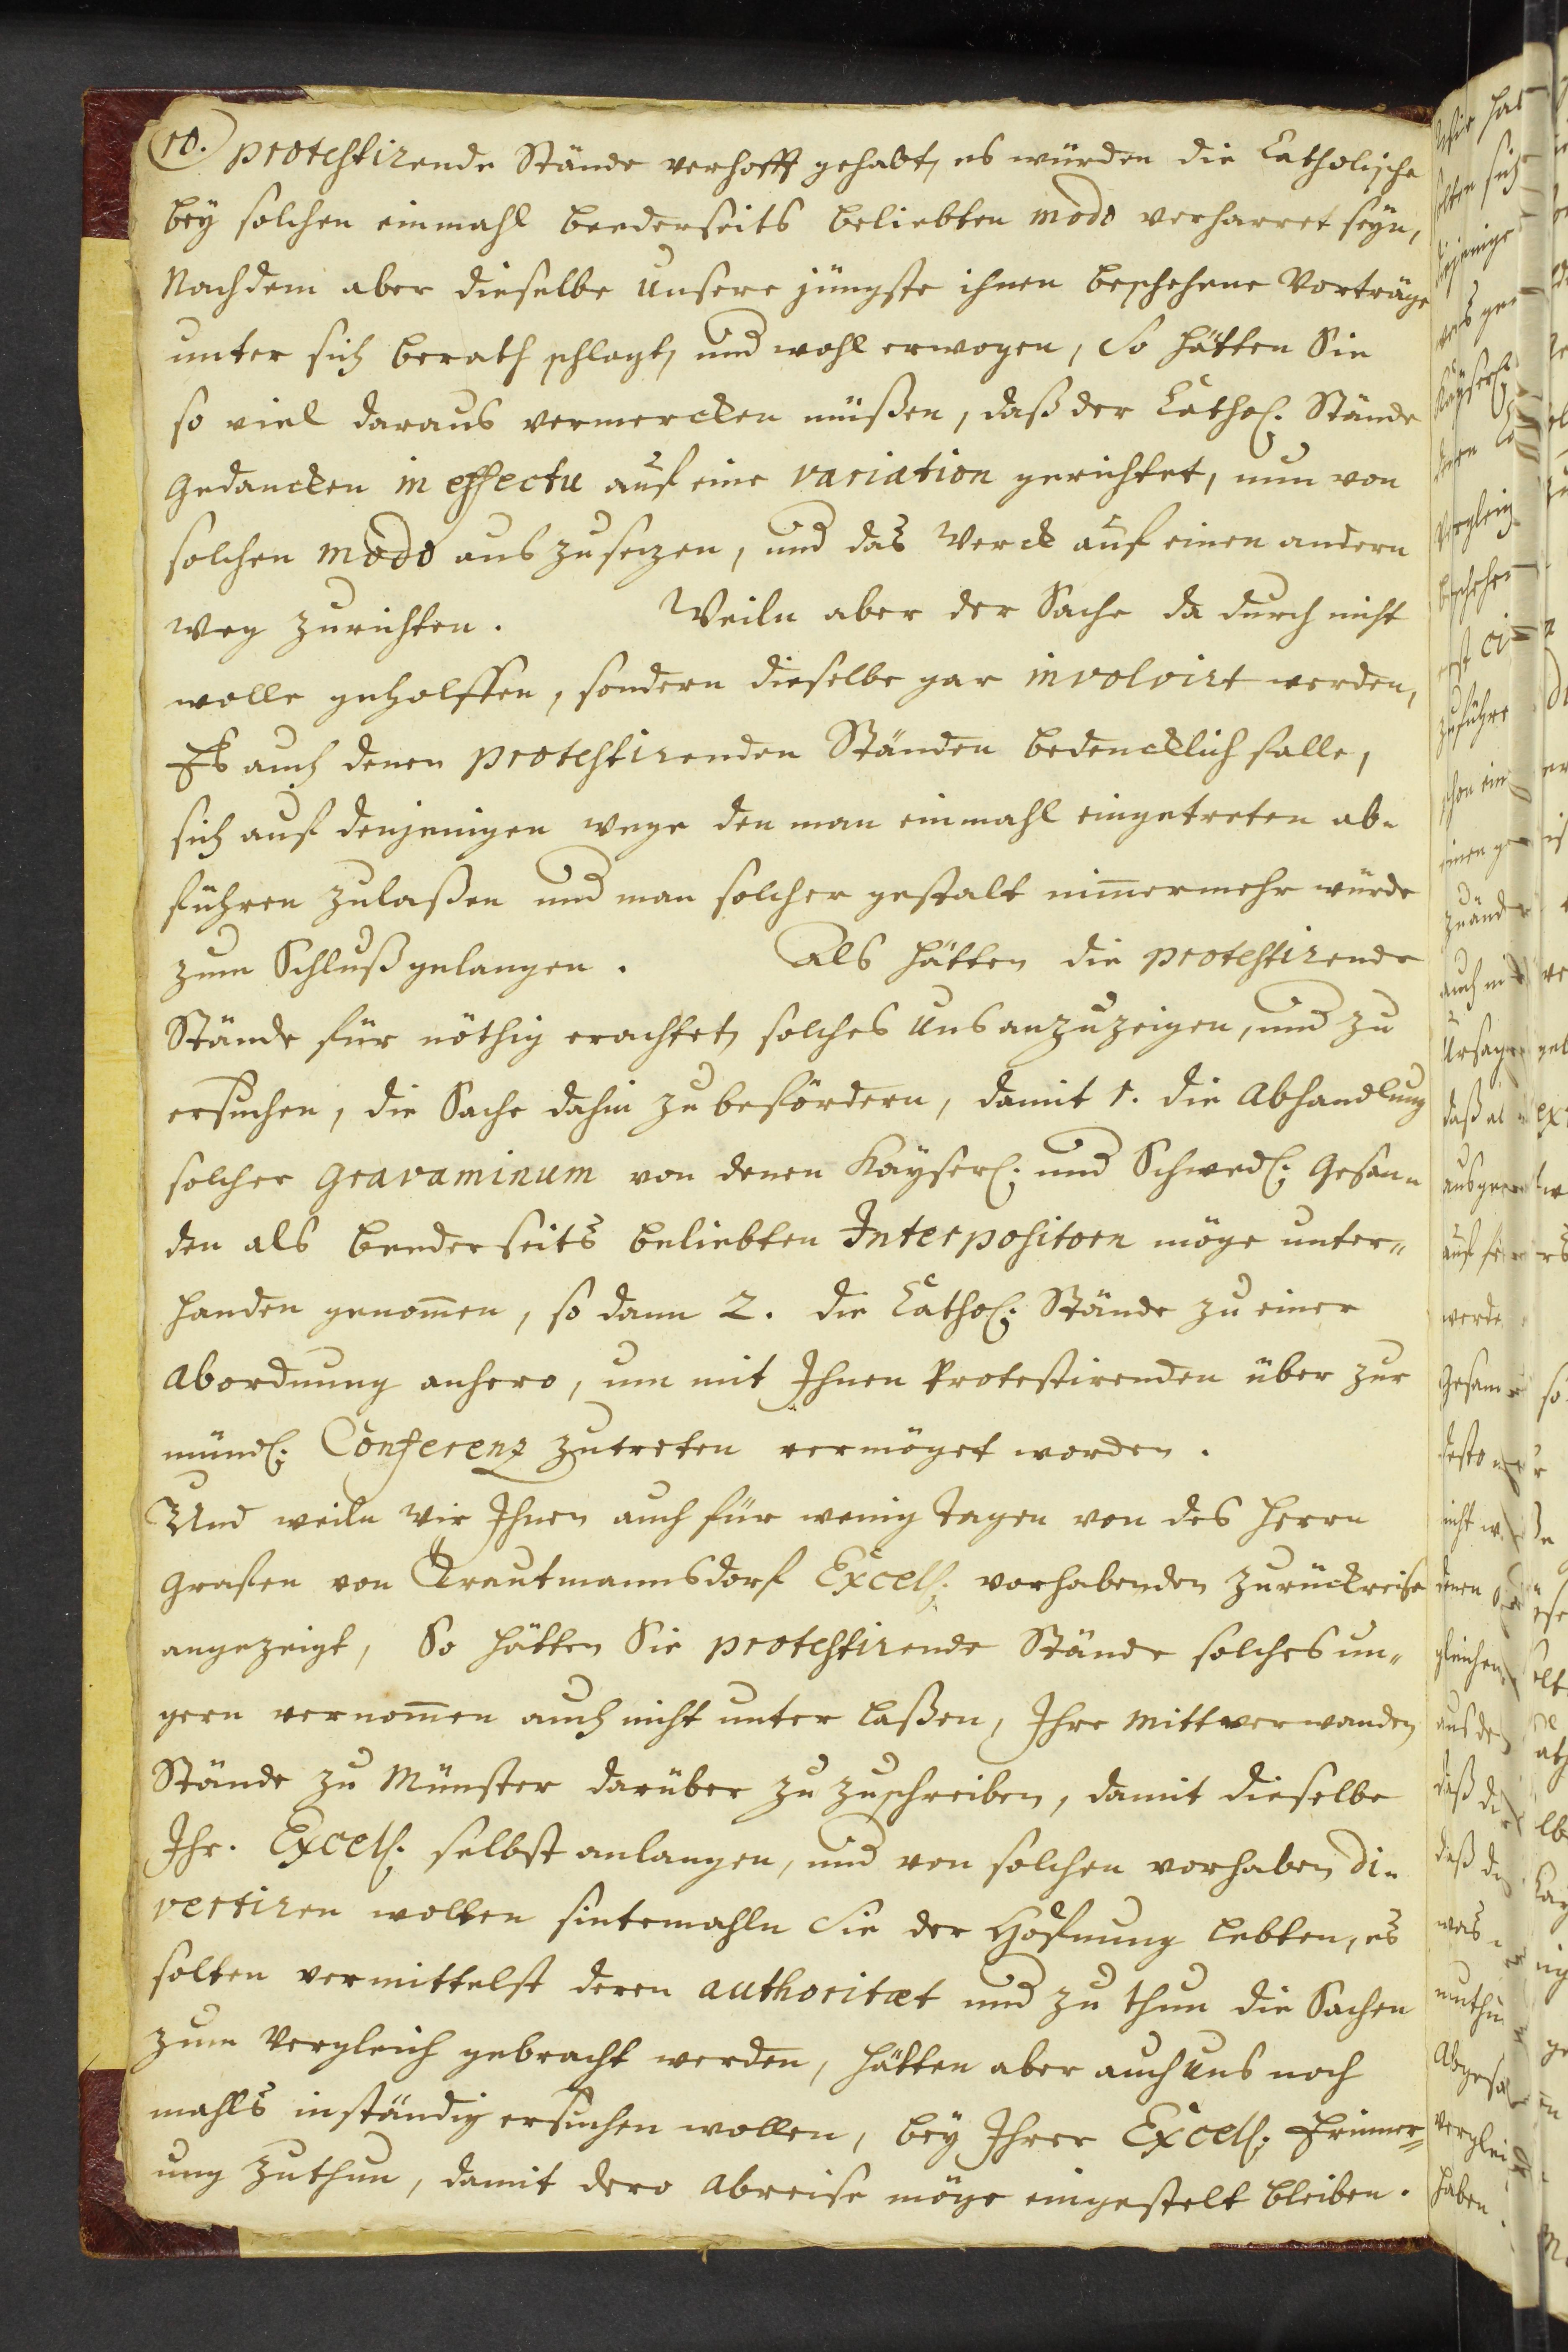 10. protestirende Stände verhofft gehabt, es würden die Catholische
bey solchen einmahl beederseits beliebten modo verharret seyn,
Nachdem aber dieselbe unsere jüngste ihnen beschehene Vorträge
unter sich berathschlagt, und wohl erwogen, So hätten Sie
so viel daraus vermercken müßen, daß der Cathol. Stände
Gedancken in effectu auf eine variation gerichtet, nun von
solchen modo auszusezen, und das Werck auf einen andern
weg zurichten. Weiln aber der Sache da durch nicht
wolle geholffen, sondern dieselbe gar involvirt werden,
Es auch denen protestirenden Ständen bedencklich falle,
sich auf denjenigen wege den man einmahl eingetreten ab-
führen zulaßen und man solcher gestalt nimmermehr würde
zum Schluß gelangen. Als hätten die protestirende
Stände für nöthig erachtet, solches Uns anzuzeigen, und zu
ersuchen, die Sache dahin zu befördern, damit 1. die Abhandlung
solcher Gravaminum von denen Kayserl. und Schwed. Gesan-
den als beederseits beliebten Interpositorn möge unter-
handen genommen, so dann 2. die Cathol. Stände zu einer
abordnung anhero, um mit Ihnen Protestirenden über zur
mündl. Conferenz zutreten vermöget worden.
Und weiln Wir Ihnen auch für wenig Tagen von des Herrn
Grafen von Trautmannsdorf Excell. vorhabenden zurückreise
angezeigt, So hätten Sie protestirende Stände solches un-
gern vernommen auch nicht unter laßen, Ihre Mittverwanden
Stände zu Münster darüber zu zuschreiben, damit dieselbe
Ihr. Excell. selbst anlangen, und von solchen vorhaben di-
vertiren wolten sintemahln Sie der Hofnung lebten, es
solten vermittelst deren authoritæt und zu thun die Sachen
zum Vergleich gebracht werden, hätten aber auch uns noch
mahls inständig ersuchen wollen, bey Ihrer Excell. Erinner-
ung zuthun, damit dero abreise möge eingestelt bleiben.